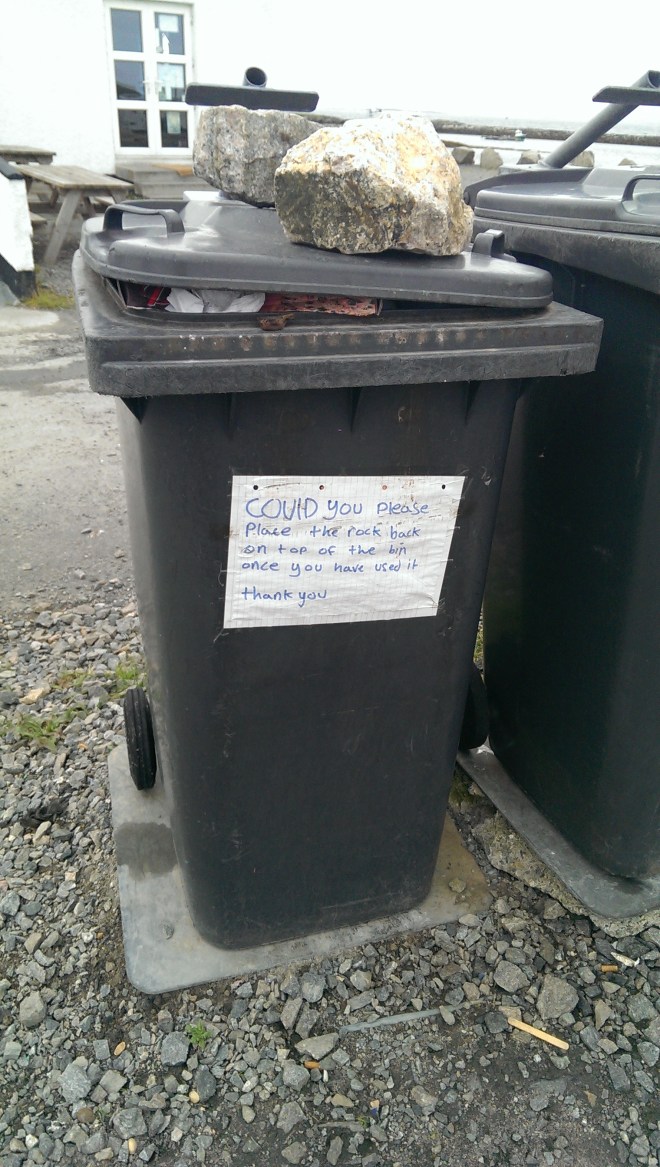 COULD you please
Place the rock back
on top of the bin
once you have used it
thank you